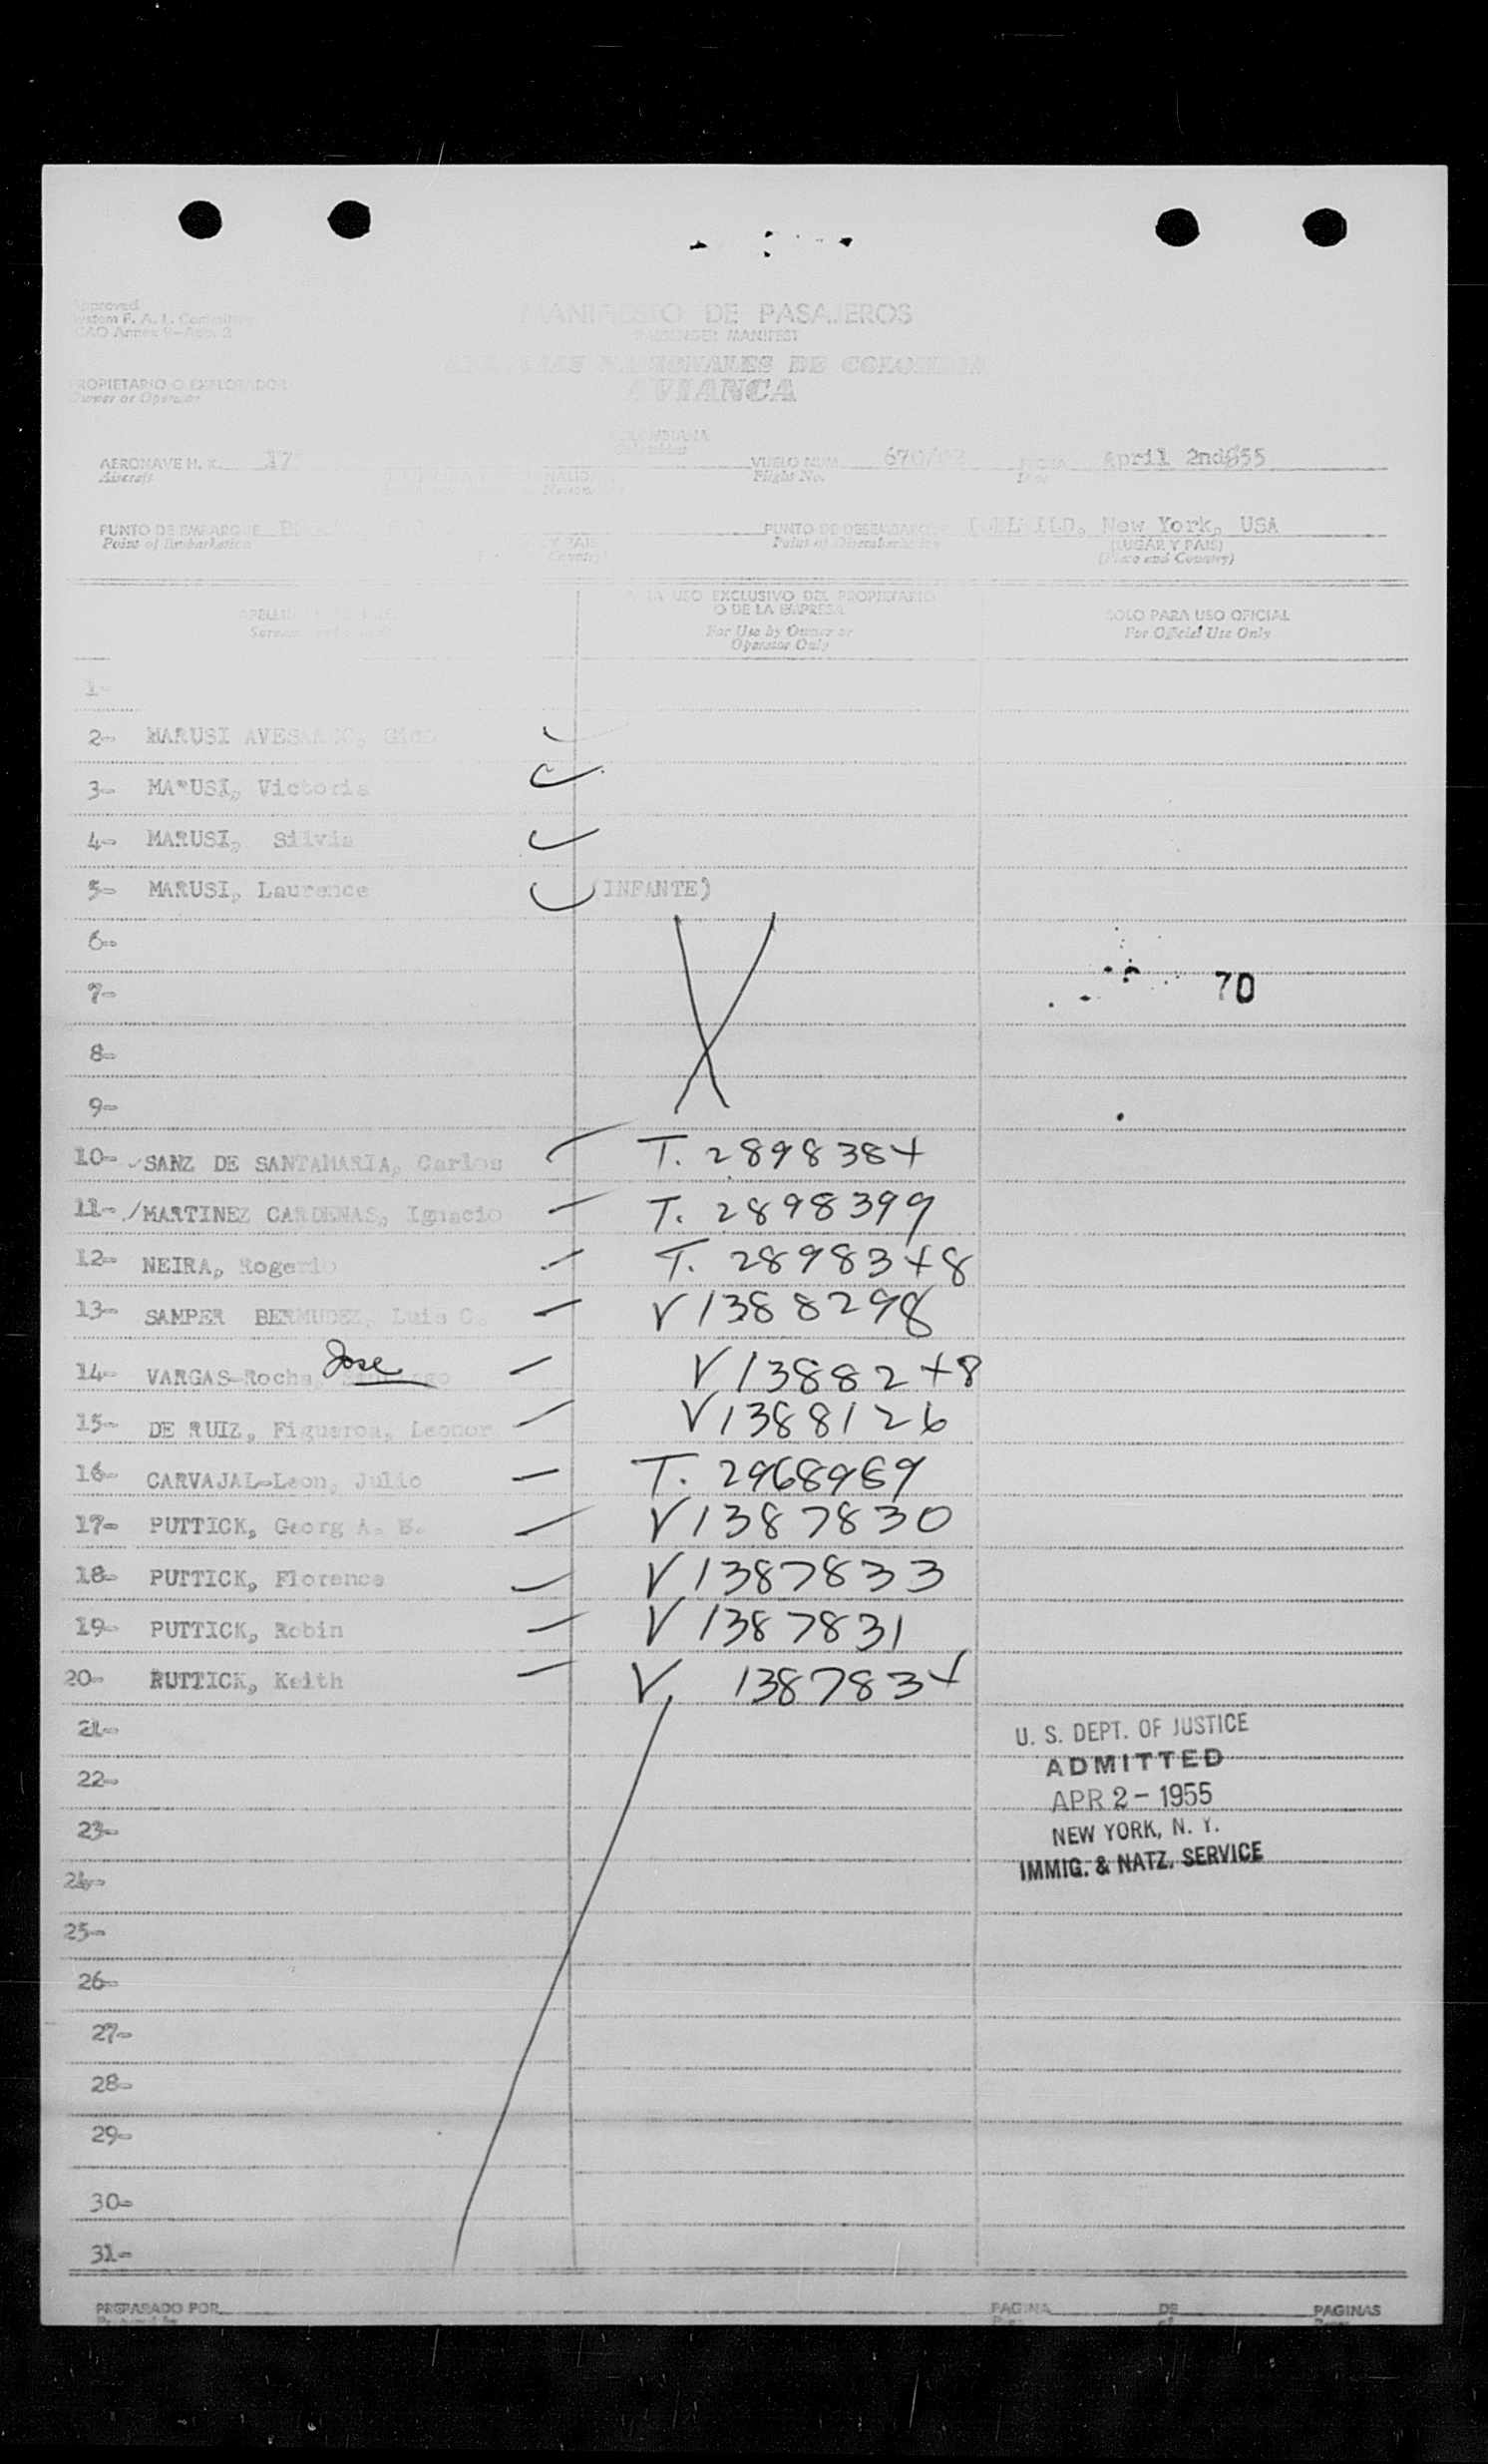 Approved
MANIFIESTO DE PASAJEROS
PASSENGER MANIFEST
NACIONALES DE COLOMBIA
AVIANCA
PROPIETARIO O EXPLOTADOR
Owner or Operator
AERONAVE H. K. 17
Aircraft
VUELO NUM
Flight No.
April 2nd
PUNTO DE EMBARQUE
Point of Embarkation
PUNTO DE DESEMBARQUE
New York, USA
(LUGAR Y PAIS)
(Place and Country)
USO EXCLUSIVO DEL PROPIETARIO
O DE LA EMPRESA
For Use by Owner or
Operator Only
SOLO PARA USO OFICIAL
For Official Use Only
1-
2- MARUSI
3- MARUSI, Victoria
4- MARUSI, Silvia
5- MARUSI, Laurence (INFANTE)
6-
7- 70
8-
9-
10- SANZ DE SANTAMARIA, Carlos T. 2898384
11- MARTINEZ CARDENAS, Ignacio T. 2898399
12- NEIRA, Rogerio T. 2898348
13- SAMPER BERMUDEZ, Luis C. V 1388298
14- VARGAS-Rocha, Jose V 1388248
15- DE RUIZ, Figueroa, Leonor V 1388126
16- CARVAJAL-Leon, Julio T. 2968969
17- PUTTICK, Georg A. V 1387830
18- PUTTICK, Florence V 1387833
19- PUTTICK, Robin V 1387831
20- RUTTICK, Keith V 1387834
21-
U. S. DEPT. OF JUSTICE
ADMITTED
22-
APR 2 - 1955
23-
NEW YORK, N. Y.
IMMIG. & NATZ. SERVICE
24-
25-
26-
27-
28-
29-
30-
31-
PREPARADO POR PAGINA DE PAGINAS